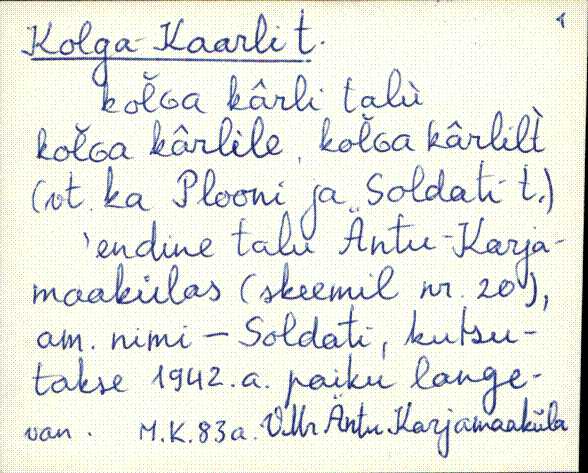 1
Kolga-Kaarli t.
kolGa kârli talù
kolGa kârlile, kolGa kârlilt̀
(vt. ka Plooni ja Soldati t.)
'endine talu Äntu-Karja-
maakülas (skeemil nr. 20),
am. nimi – Soldati, kutsu-
takse 1942.a. paiku lange-
van. M.K. 83a. V.Mr Äntu Karjamaaküla